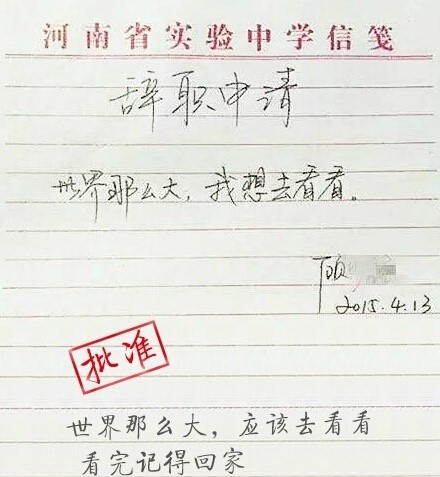 河南省实验中学信笺
辞职申请
世界那么大，我想去看看。
顾
2015.4.13
批准
世界那么大，应该去看看
看完记得回家